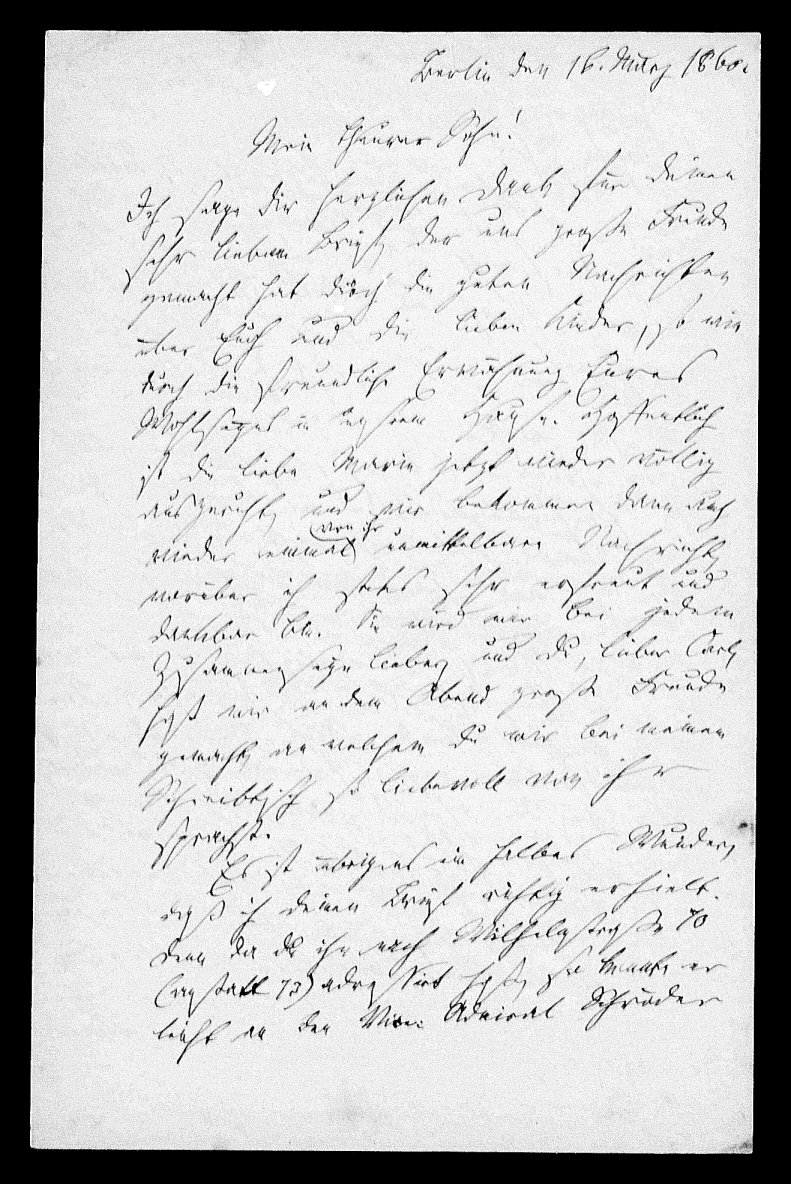 Berlin den 16. März 1860.
Mein theurer Sohn!
Ich sage dir herzlichen Dank für deinen
sehr lieben Brief, der uns große Freude
gemacht hat durch die guten Nachrichten
über Euch und die lieben Kinder, so wie
durch die freundliche Erwähnung Eures
Wohlseyns in unserem Hause. Hoffentlich
ist die liebe Marie jetzt wieder völlig
ausgeruht, und wir bekommen dann auch
wieder einmal (von ihr) unmittelbare Nachricht,
worüber ich stets sehr erfreut und
dankbar bin. Sie wird mir bei jedem
Zusammenseyn lieber, und du, lieber Carl,
hast mir an dem Abend große Freude
gemacht, an welchem du mir bei meinem
Schreibtisch so liebevoll von ihr
sprachst.
Es ist übrigens ein halbes Wunder,
daß ich deinen Brief richtig erhielt.
Denn da du ihn nach Wilhelmstraße 70
(anstatt 73) adressirt hast, so konnte er
leicht an den Vice-Admiral Schröder